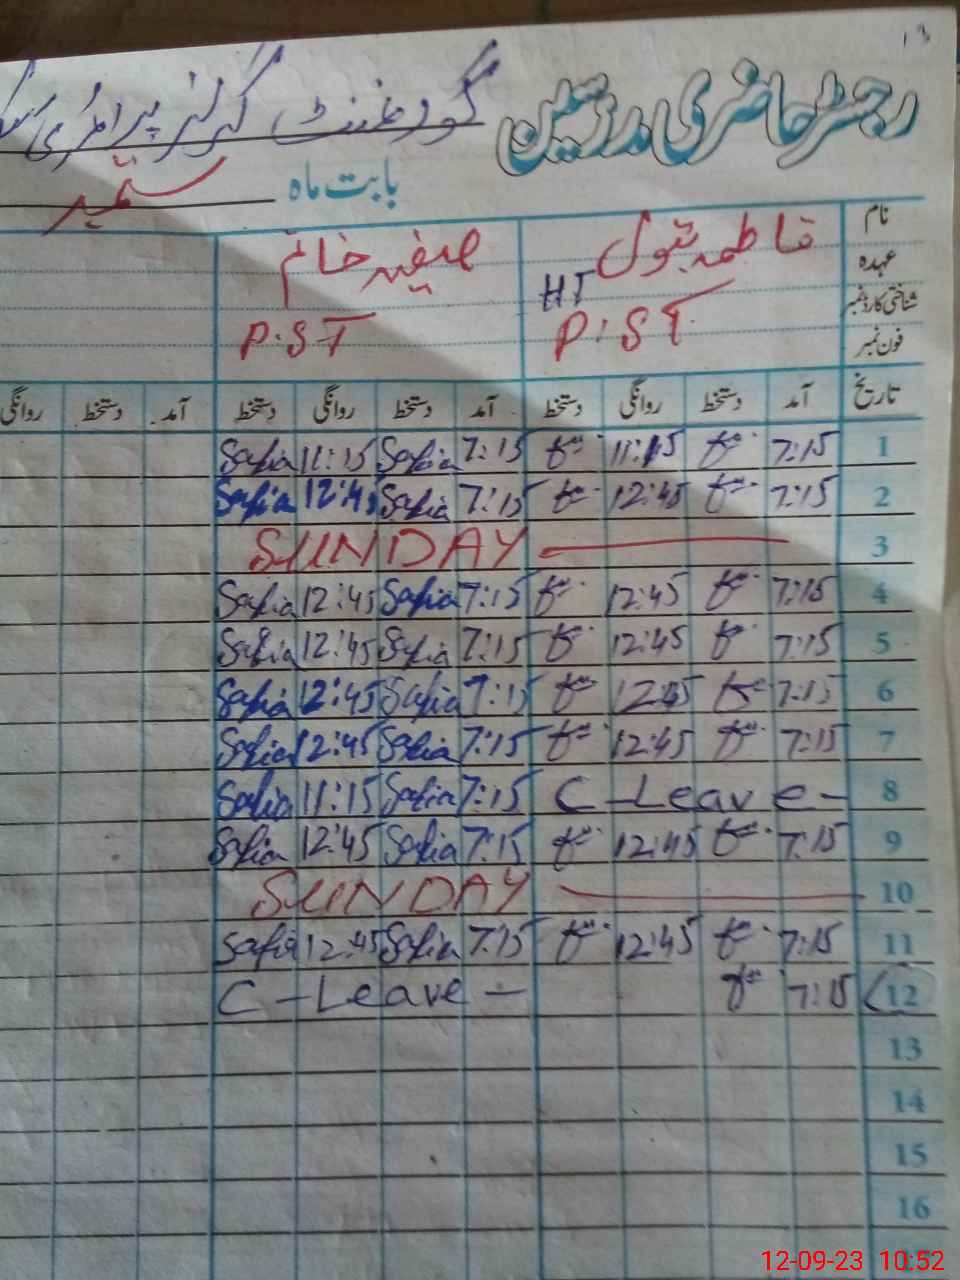 ۱۳
رجسٹر حاضری مدرسین گورنمنٹ گرلز پرائمری
بابت ماہ ستمبر
نام فاطمہ بتول صفیہ خانم
عہدہ HT
شناختی کارڈ نمبر P.ST P.ST
فون نمبر
تاریخ آمد دستخط روانگی دستخط آمد دستخط روانگی دستخط آمد دستخط روانگی
1 7:15 11:15 7:15 Safia 11:15 Safia
2 7:15 12:45 7:15 Safia 12:45 Safia
3 SUNDAY
4 7:15 12:45 7:15 Safia 12:45 Safia
5 7:15 12:45 7:15 Safia 12:45 Safia
6 7:15 12:45 7:15 Safia 12:45 Safia
7 7:15 12:45 7:15 Safia 12:45 Safia
8 C-Leave- 7:15 Safia 11:15 Safia
9 7:15 12:45 7:15 Safia 12:45 Safia
10 SUNDAY
11 7:15 12:45 7:15 Safia 12:45 Safia
12 7:15 C-Leave-
13
14
15
16
12-09-23 10:52